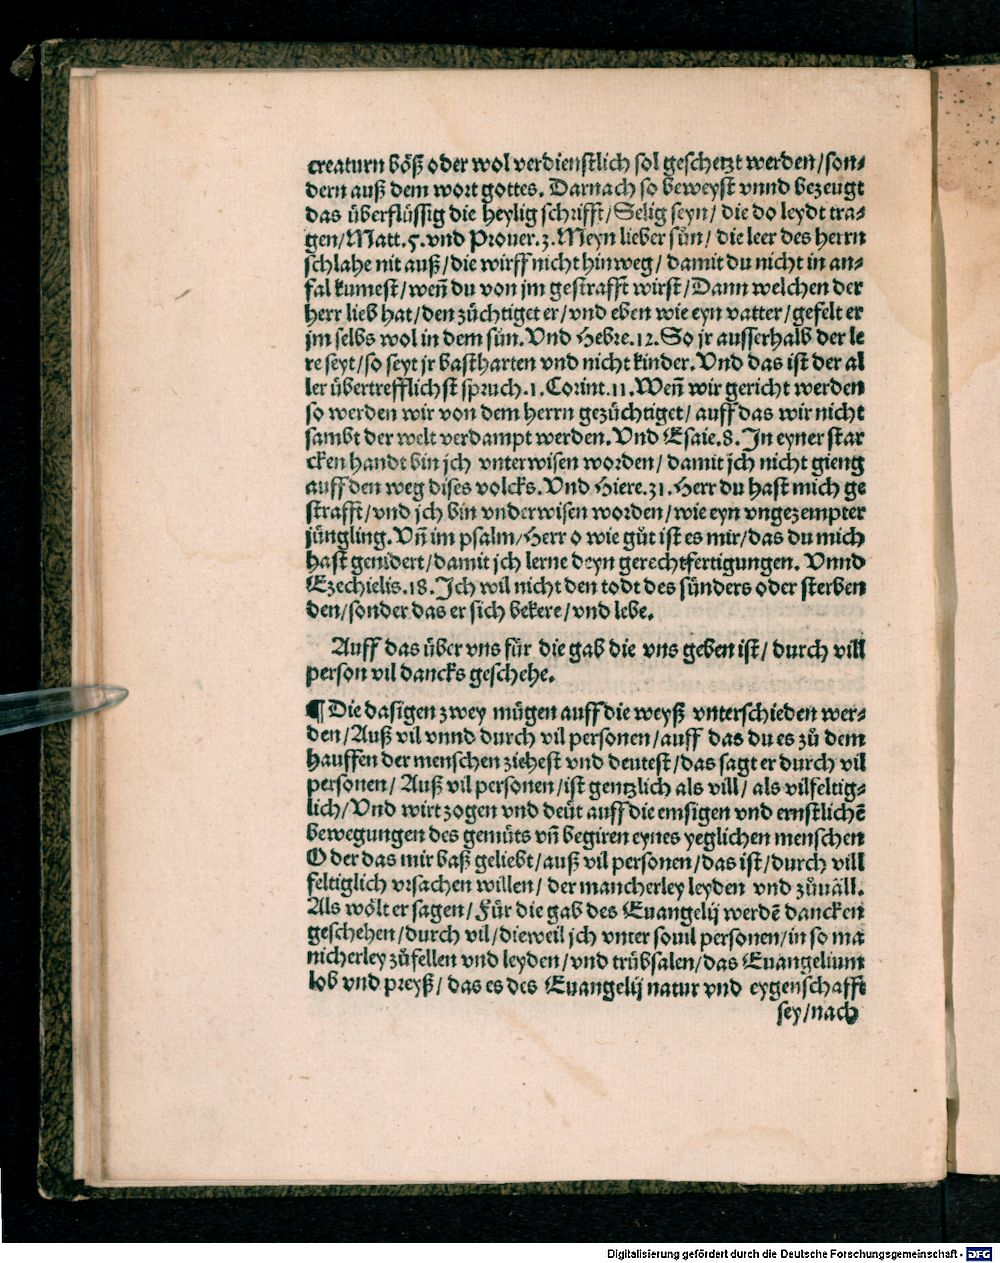 creaturn böß oder wol verdienstlich sol geschetzt werden/son⸗
dern auß dem wort gottes. Darnach so beweyst vnnd bezeugt
das überflüssig die heylig schrifft/Selig seyn/ die do leydt tra⸗
gen/Matt.5.vnd Prouer.3.Meyn lieber sůn/ die leer des herrn
schlahe nit auß/die wirff nicht hinweg/ damit du nicht in an⸗
fal kumest/weñ du von jm gestrafft wirst/Dann welchen der
herr lieb hat/den züchtiget er/vnd eben wie eyn vatter/gefelt er
jm selbs wol in dem sůn. Vnd Hebre.12. So jr ausserhalb der le
re seyt/so seyt jr bastharten vnd nicht kinder. Vnd das ist der al
ler übertrefflichst spruch.1.Corint.11.Weñ wir gericht werden
so werden wir von dem herrn gezüchtiget/auff das wir nicht
sambt der welt verdampt werden. Vnd Esaie.8.In eyner star
cken handt bin jch vnterwisen worden/damit jch nicht gieng
auff den weg dises volcks. Vnd Hiere.31.Herr du hast mich ge
strafft/vnd jch bin vnderwisen worden/wie eyn vngezempter
jüngling. Vñ im psalm/Herr o wie gůt ist es mir/das du mich
hast genidert/damit jch lerne deyn gerechtfertigungen. Vnnd
Ezechielis.18.Ich wil nicht den todt des sünders oder sterben
den/sonder das er sich bekere/vnd lebe.
Auff das über vns für die gab die vns geben ist/ durch vill
person vil dancks geschehe.
¶ Die dasigen zwey mügen auff die weyß vnterschieden wer⸗
den/Auß vil vnnd durch vil personen/auff das du es zů dem
hauffen der menschen ziehest vnd deutest/das sagt er durch vil
personen/ Auß vil personen/ist gentzlich als vill/ als vilfeltig⸗
lich/ Vnd wirt zogen vnd deüt auff die emsigen vnd ernstlichē
bewegungen des gemüts vñ begiren eynes yeglichen menschen
Oder das mir baß geliebt/auß vil personen/das ist/durch vill
feltiglich vrsachen willen/ der mancherley leyden vnd zůuäll.
Als wölt er sagen/ Für die gab des Euangelij werdē dancken
geschehen/durch vil/dieweil jch vnter souil personen/in so ma
nicherley zůfellen vnd leyden/vnd trübsalen/das Euangelium
lob vnd preyß/ das es des Euangelij natur vnd eygenschafft
sey/nach
Digitalisierung gefördert durch die Deutsche Forschungsgemeinschaft - DFG